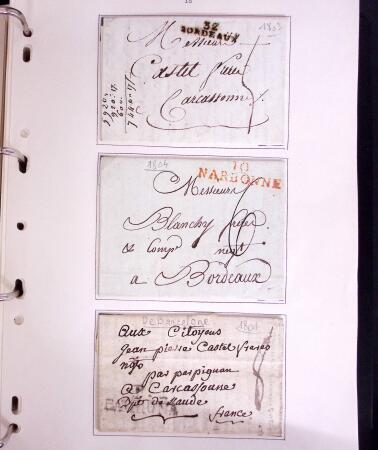 32
BORDEAUX
1803
Messieurs
Castel frères
Carcassonne
1804
10
NARBONNE
Messieurs
Blanchy frères
& Comp^e negt
a Bordeaux
De Barcelone
1801
Aux Citoyens
Jean pierre Castel freres
par perpignan
a Carcassonne
Dpt de Laude
france